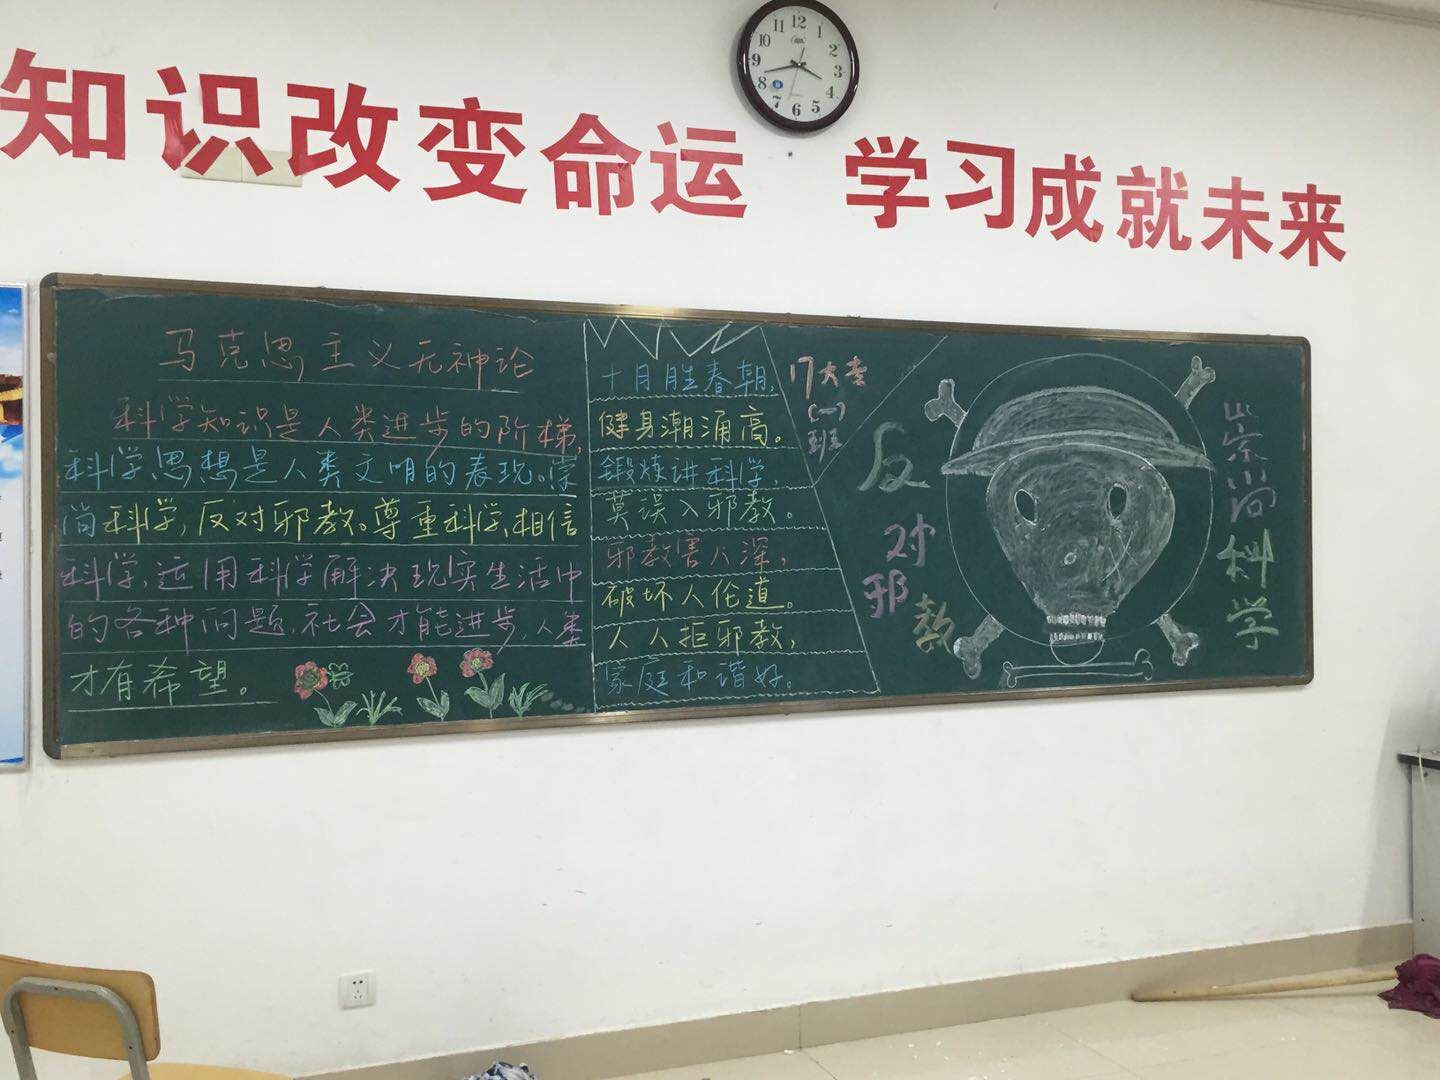 知识改变命运 学习成就未来
马克思主义无神论
科学知识是人类进步的阶梯,
科学思想是人类文明的表现。崇
尚科学,反对邪教。尊重科学,相信
科学,运用科学解决现实生活中
的各种问题,社会才能进步,人类
才有希望。
十月胜春朝,
健身潮涌高。
锻炼讲科学,
莫误入邪教。
邪教害人深,
破坏人伦道。
人人拒邪教,
家庭和谐好。
17大专
(一)
班
反对邪教
崇尚科学
12
1
2
3
4
5
6
7
8
9
10
11